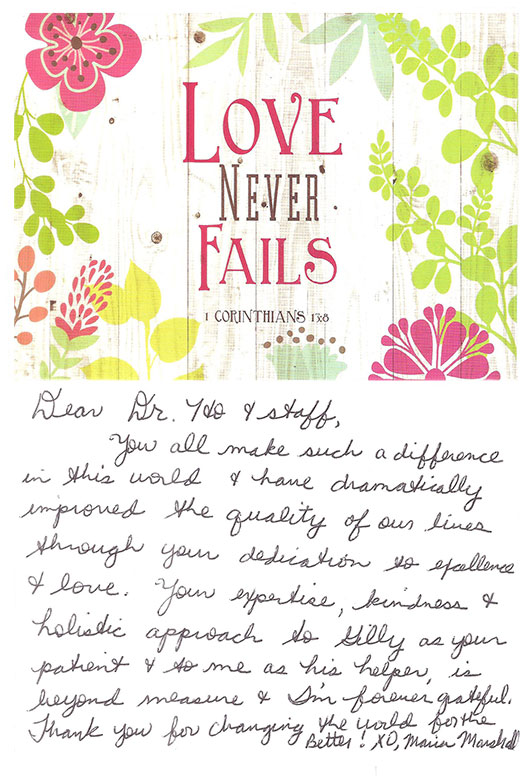 LOVE
NEVER
FAILS
1 CORINTHIANS 13:8
Dear Dr. Ho & staff,
You all make such a difference
in this world & have dramatically
improved the quality of our lives
through your dedication to excellence
& love. Your expertise, kindness &
holistic approach to as your
patient & to me as his helper, is
beyond measure & I'm forever grateful.
Thank you for changing the world for the
Better! XO, Maria Marshall